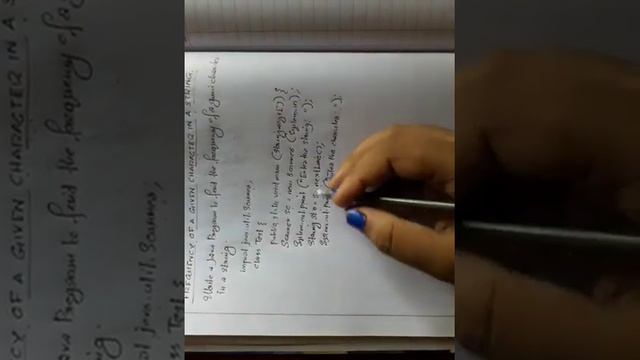 FREQUENCY OF A GIVEN CHARACTER IN A STRING
Q. Write a Java Program to find the frequency of a given character
in a string.
import java.util.Scanner;
class Test {
public static void main (String args[]) {
Scanner sc = new Scanner (System.in);
System.out.print ("Enter the string: ");
String st = sc.nextLine();
System.out. the character: ");